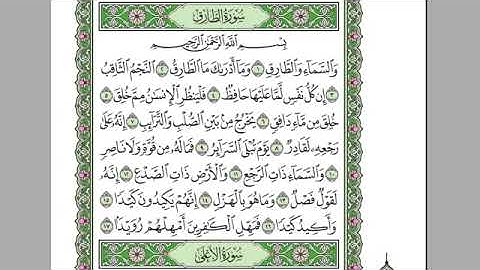 سُورَةُ الطَّارِقِ
بِسْمِ اللَّهِ الرَّحْمَٰنِ الرَّحِيمِ
وَالسَّمَاءِ وَالطَّارِقِ ١ وَمَا أَدْرَىٰكَ مَا الطَّارِقُ ٢ النَّجْمُ الثَّاقِبُ
٣ إِن كُلُّ نَفْسٍ لَّمَّا عَلَيْهَا حَافِظٌ ٤ فَلْيَنظُرِ الْإِنسَٰنُ مِمَّ خُلِقَ ٥
خُلِقَ مِن مَّاءٍ دَافِقٍ ٦ يَخْرُجُ مِن بَيْنِ الصُّلْبِ وَالتَّرَائِبِ ٧ إِنَّهُ عَلَىٰ
رَجْعِهِ لَقَادِرٌ ٨ يَوْمَ تُبْلَى السَّرَائِرُ ٩ فَمَا لَهُ مِن قُوَّةٍ وَلَا نَاصِرٍ
١٠ وَالسَّمَاءِ ذَاتِ الرَّجْعِ ١١ وَالْأَرْضِ ذَاتِ الصَّدْعِ ١٢ إِنَّهُ
لَقَوْلٌ فَصْلٌ ١٣ وَمَا هُوَ بِالْهَزْلِ ١٤ إِنَّهُمْ يَكِيدُونَ كَيْدًا ١٥
وَأَكِيدُ كَيْدًا ١٦ فَمَهِّلِ الْكَٰفِرِينَ أَمْهِلْهُمْ رُوَيْدًا ١٧
سُورَةُ الْأَعْلَىٰ